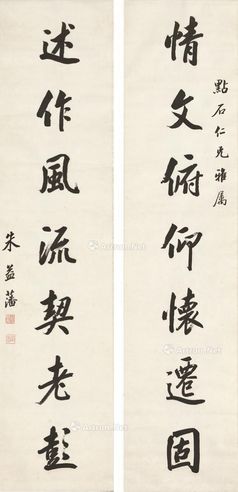 點石仁兄雅属
情文俯仰懷遷固
述作風流契老彭
朱益藩